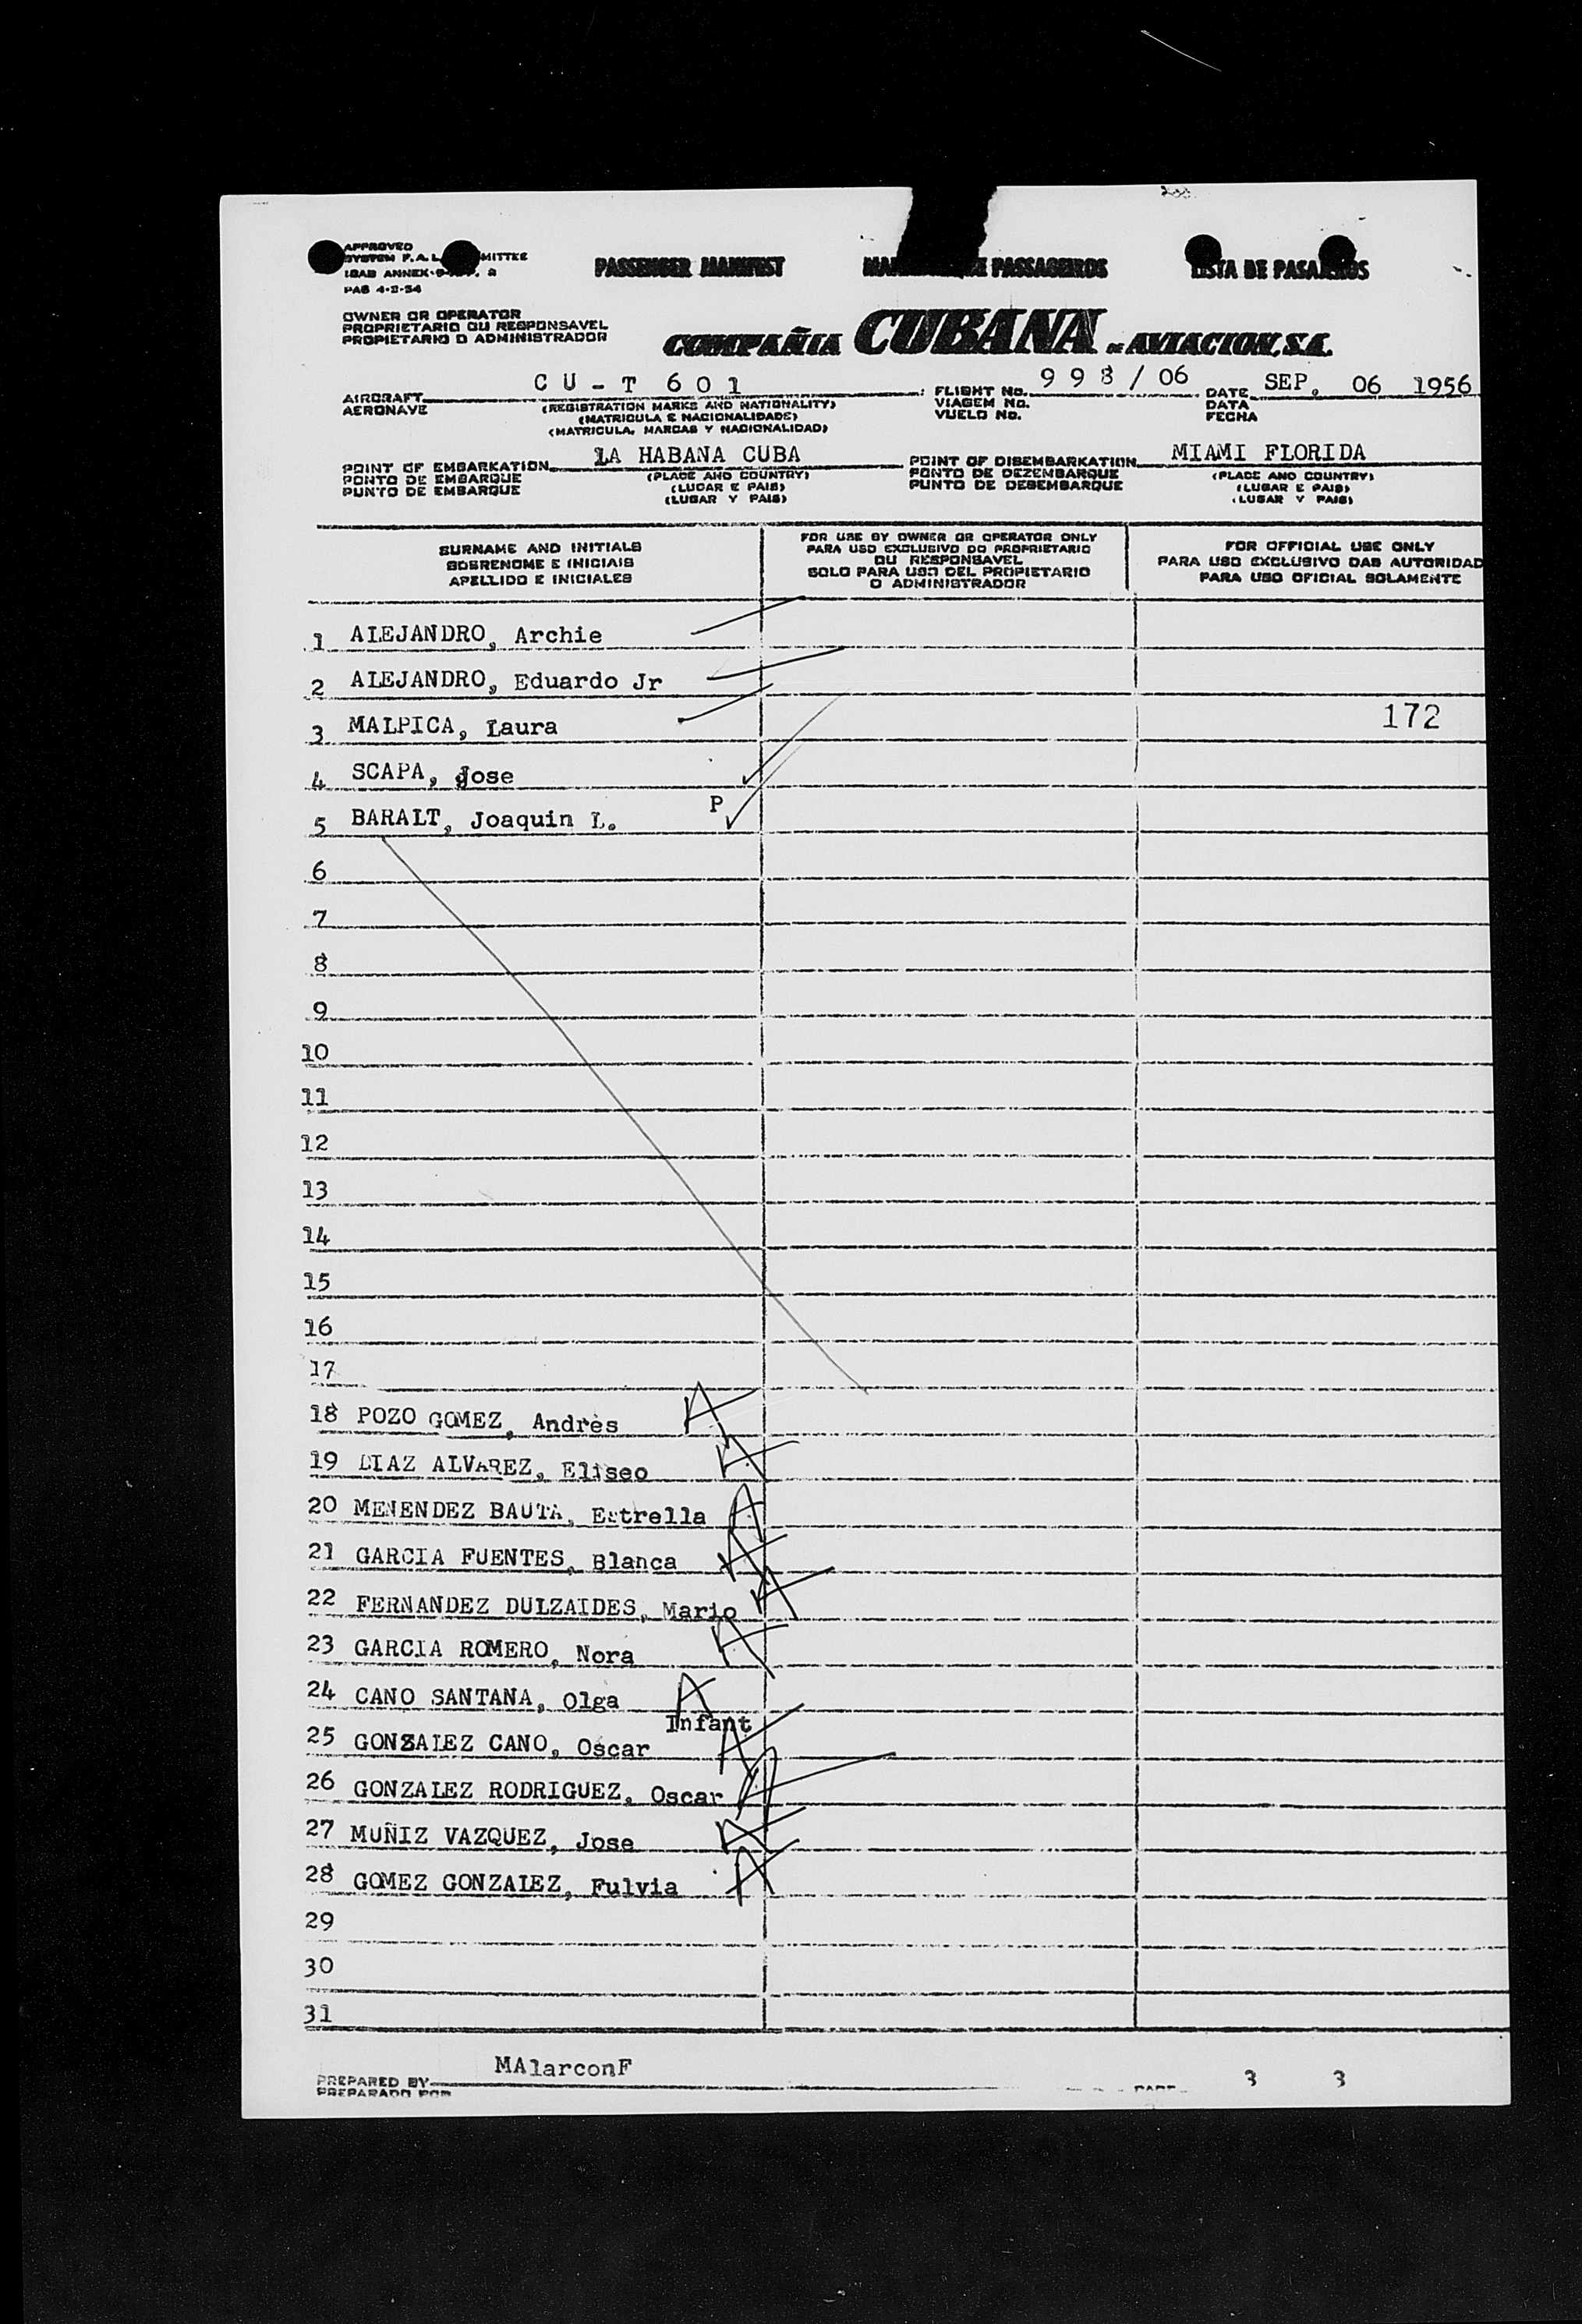 APPROVED
SYSTEM F.A.L. MITTEE
ANNEX-9
PAS 4-2-54
PASSENGER MANIFEST
DE PASSAGEIROS
LISTA DE PASAJEROS
OWNER OR OPERATOR
PROPRIETARIO OU RESPONSAVEL
PROPIETARIO O ADMINISTRADOR
COMPAÑIA CUBANA DE AVIACION, S.A.
AIRCRAFT CU-T 601
AERONAVE
(REGISTRATION MARKS AND NATIONALITY)
(MATRICULA E NACIONALIDADE)
(MATRICULA, MARCAS Y NACIONALIDAD)
FLIGHT No. 998/06
VIAGEM No.
VUELO No.
DATE SEP. 06 1956
DATA
FECHA
POINT OF EMBARKATION LA HABANA CUBA
PONTO DE EMBARQUE
PUNTO DE EMBARQUE
(PLACE AND COUNTRY)
(LUGAR E PAIS)
(LUGAR Y PAIS)
POINT OF DISEMBARKATION MIAMI FLORIDA
PONTO DE DEZEMBARQUE
PUNTO DE DESEMBARQUE
(PLACE AND COUNTRY)
(LUGAR E PAIS)
(LUGAR Y PAIS)
SURNAME AND INITIALS
SOBRENOME E INICIAIS
APELLIDO E INICIALES
FOR USE BY OWNER OR OPERATOR ONLY
PARA USO EXCLUSIVO DO PROPRIETARIO
OU RESPONSAVEL
SOLO PARA USO DEL PROPIETARIO
O ADMINISTRADOR
FOR OFFICIAL USE ONLY
PARA USO EXCLUSIVO DAS AUTORIDAD
PARA USO OFICIAL SOLAMENTE
1 ALEJANDRO, Archie
2 ALEJANDRO, Eduardo Jr
3 MALPICA, Laura 172
4 SCAPA, Jose
5 BARALT, Joaquin L. P
6
7
8
9
10
11
12
13
14
15
16
17
18 POZO GOMEZ, Andrès A
19 DIAZ ALVAREZ, Eliseo A
20 MENENDEZ BAUTA, Estrella A
21 GARCIA FUENTES, Blanca A
22 FERNANDEZ DULZAIDES, Mario A
23 GARCIA ROMERO, Nora A
24 CANO SANTANA, Olga A
Infant
25 GONZALEZ CANO, Oscar A
26 GONZALEZ RODRIGUEZ, Oscar A
27 MUÑIZ VAZQUEZ, Jose A
28 GOMEZ GONZALEZ, Fulvia A
29
30
31
PREPARED BY MAlarconF
PREPARADO POR
3 3